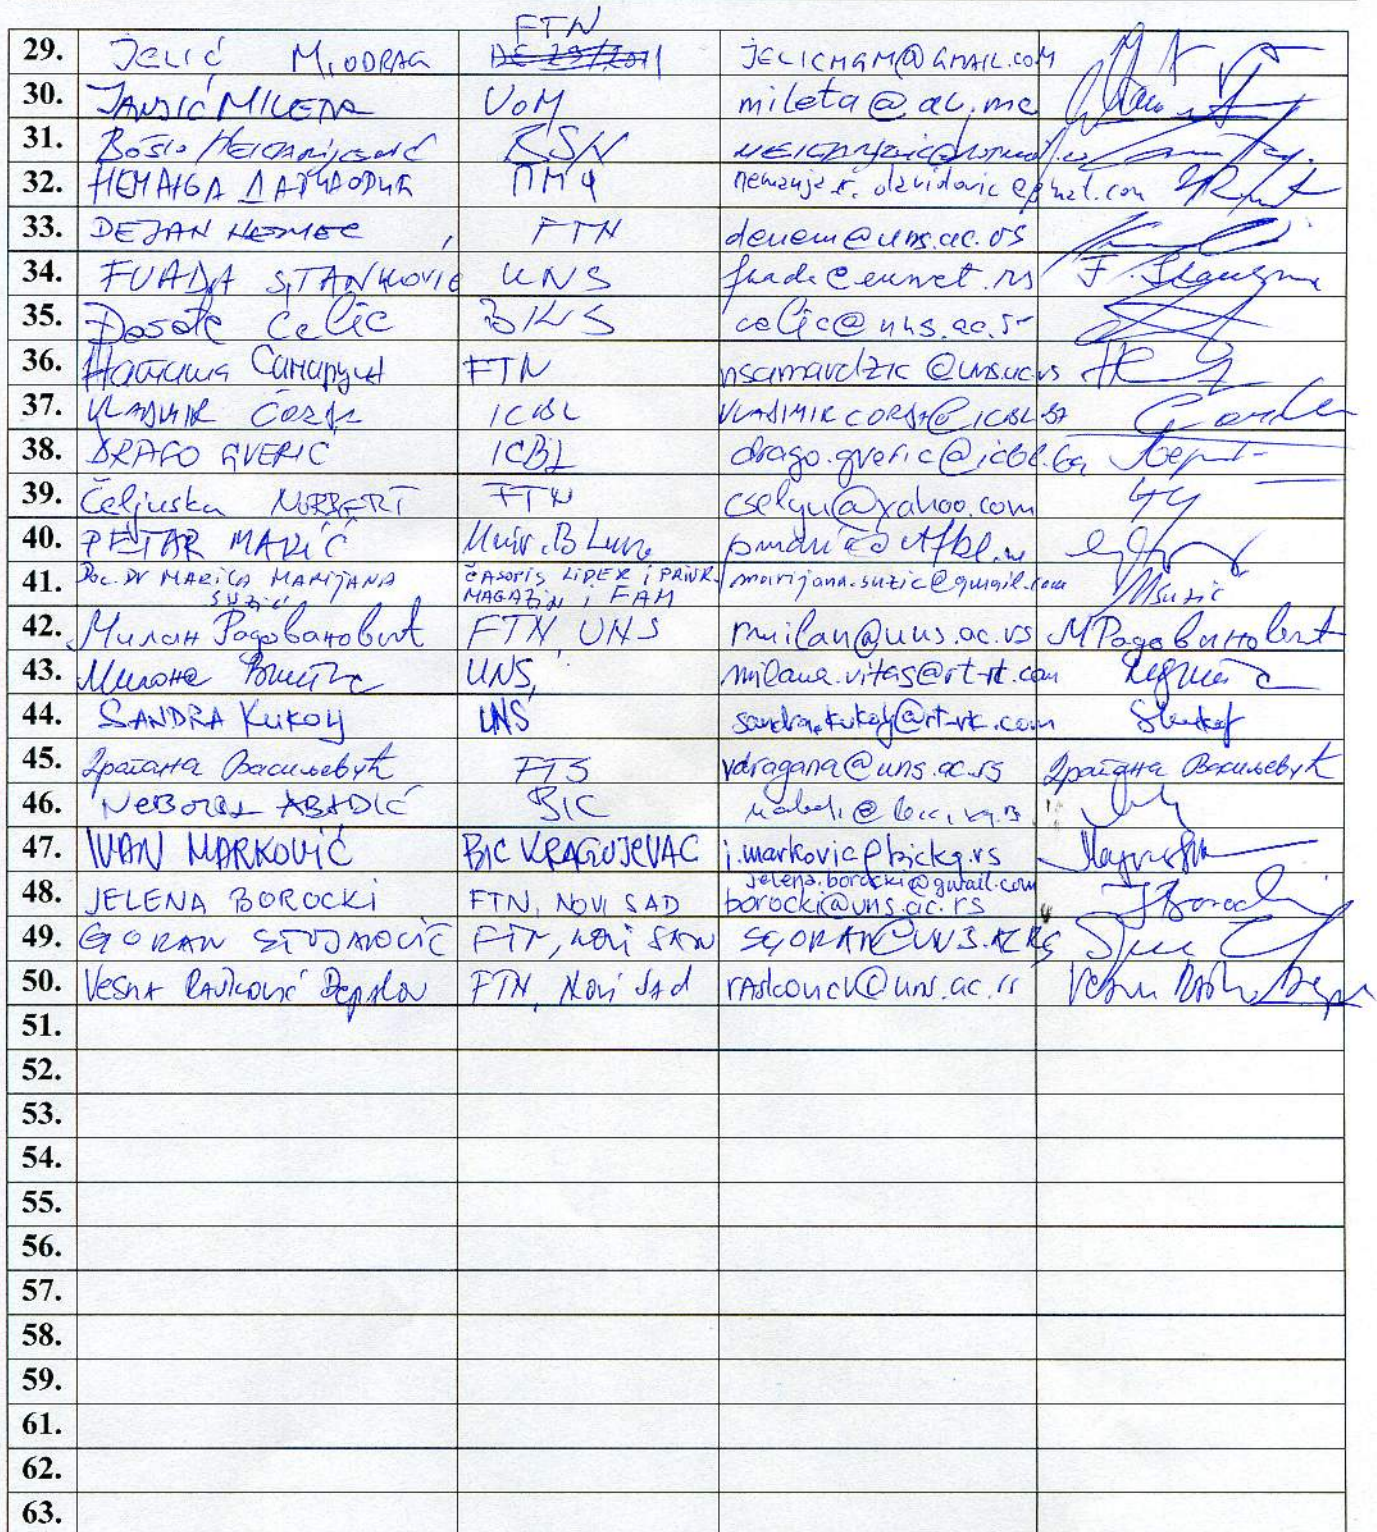 FTN
29. JELIĆ MIODRAG DE 29/2011 JELICMGM@GMAIL.COM
30. JANJIĆ MILETA UoM mileta@ac.me
31. Božo
32. ПМФ nemanja.r.davidovic@gmail.com
33. DEJAN NEMEC, FTN denem@uns.ac.rs
34. FUADA STANKOVIĆ UNS fuada@eunet.rs F. Stanković
35. Đorđe Ćelić BKS celic@uns.ac.rs
36. Наташа Самарџић FTN nsamardzic@uns.ac.rs
37. VLADIMIR ĆORDA ICBL VLADIMIR.CORDA@ICBL.BA
38. DRAGO GVERIĆ ICBL drago.gveric@icbl.ba
39. Čeljuska NORBERT FTN cselyu@yahoo.com
40. PETAR MARIĆ Univ. B Luka
41. Doc. Dr MARICA MARIJANA ČASOPIS LIDER i PRIVR. marijana.suzic@gmail.com MSuzić
SUZIĆ MAGAZIN i FAM
42. Милан Радовановић FTN, UNS rmilan@uns.ac.rs МРадовановић
43. Милана Витас UNS, milana.vitas@rt-rk.com
44. SANDRA KUKOLJ UNS sandra.kukolj@rt-rk.com SKukolj
45. Драгана Васиљевић FTS vdragana@uns.ac.rs Драгана Васиљевић
46. NEBOJŠA ABADIĆ BIC
47. IVAN MARKOVIĆ BIC KRAGUJEVAC i.markovic@bickg.rs
jelena.borocki@gmail.com
48. JELENA BOROCKI FTN, NOVI SAD borocki@uns.ac.rs JBorocki
49. GORAN STOJANOVIĆ FTN, NOVI SAD SGORAN@UNS.AC.RS
50. Vesna Rašković Depalov FTN, Novi Sad raskovicv@uns.ac.rs
51.
52.
53.
54.
55.
56.
57.
58.
59.
61.
62.
63.